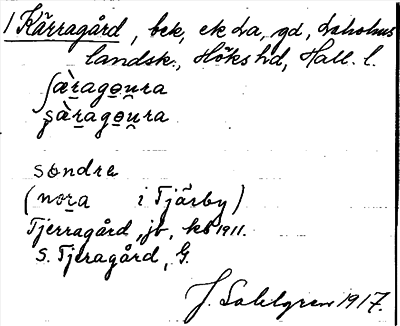 1 Kärragård, bek, ek La, gd, Laholms
landsk., Höks hd, Hall. l.
ʃæ̀rago̲u̲ra
ʂàrago̲u̲ra
søndre
(nora i Tjärby)
Tjerragård, jb, kb 1911.
S. Tjeragård, G.
J. Sahlgren 1917.